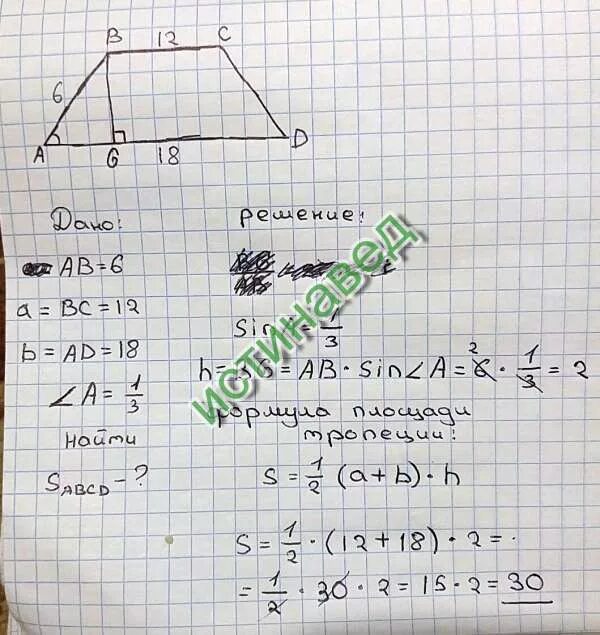 B 12 C
6
A G 18 D
Дано:
AB=6
a = BC = 12
b = AD = 18
∠A = 1/3
найти
S_ABCD - ?
Решение:
Sin = 1/3
h = BG = AB · Sin∠A = 6 · 1/3 = 2
2
формула площади
тропеции:
S = 1/2 (a + b) · h
S = 1/2 · (12 + 18) · 2 =
= 1/2 · 30 · 2 = 15 · 2 = 30
истинавед